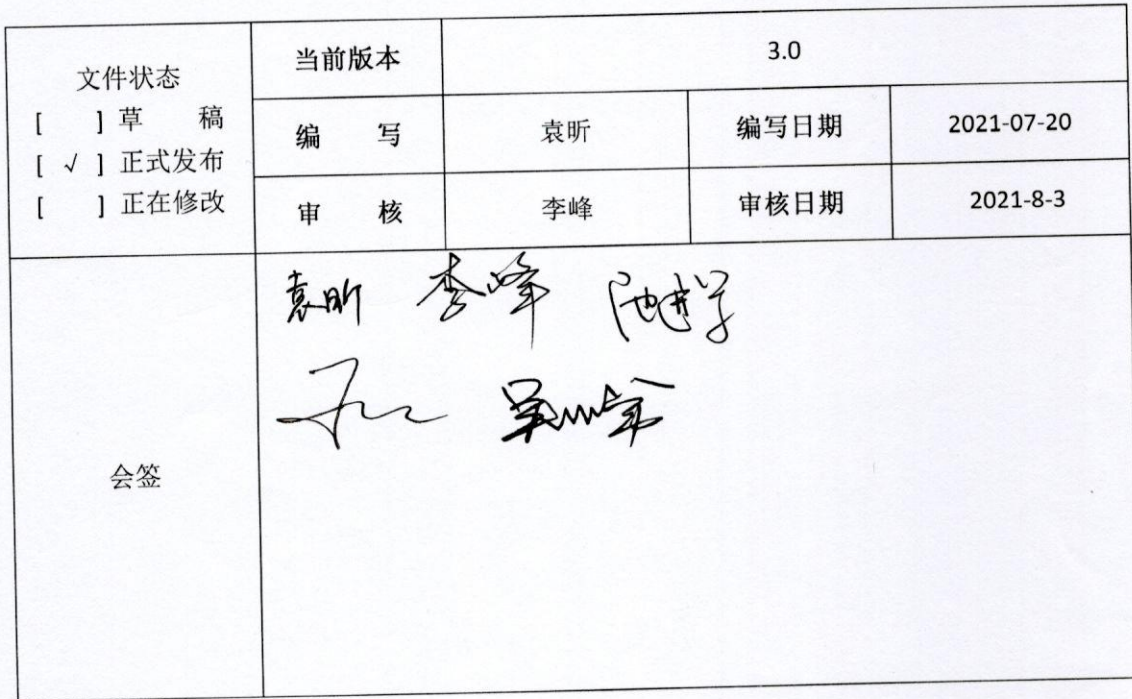 文件状态
[ ] 草 稿
[ √ ] 正式发布
[ ] 正在修改
当前版本 3.0
编 写 袁昕 编写日期 2021-07-20
审 核 李峰 审核日期 2021-8-3
会签
袁昕 李峰